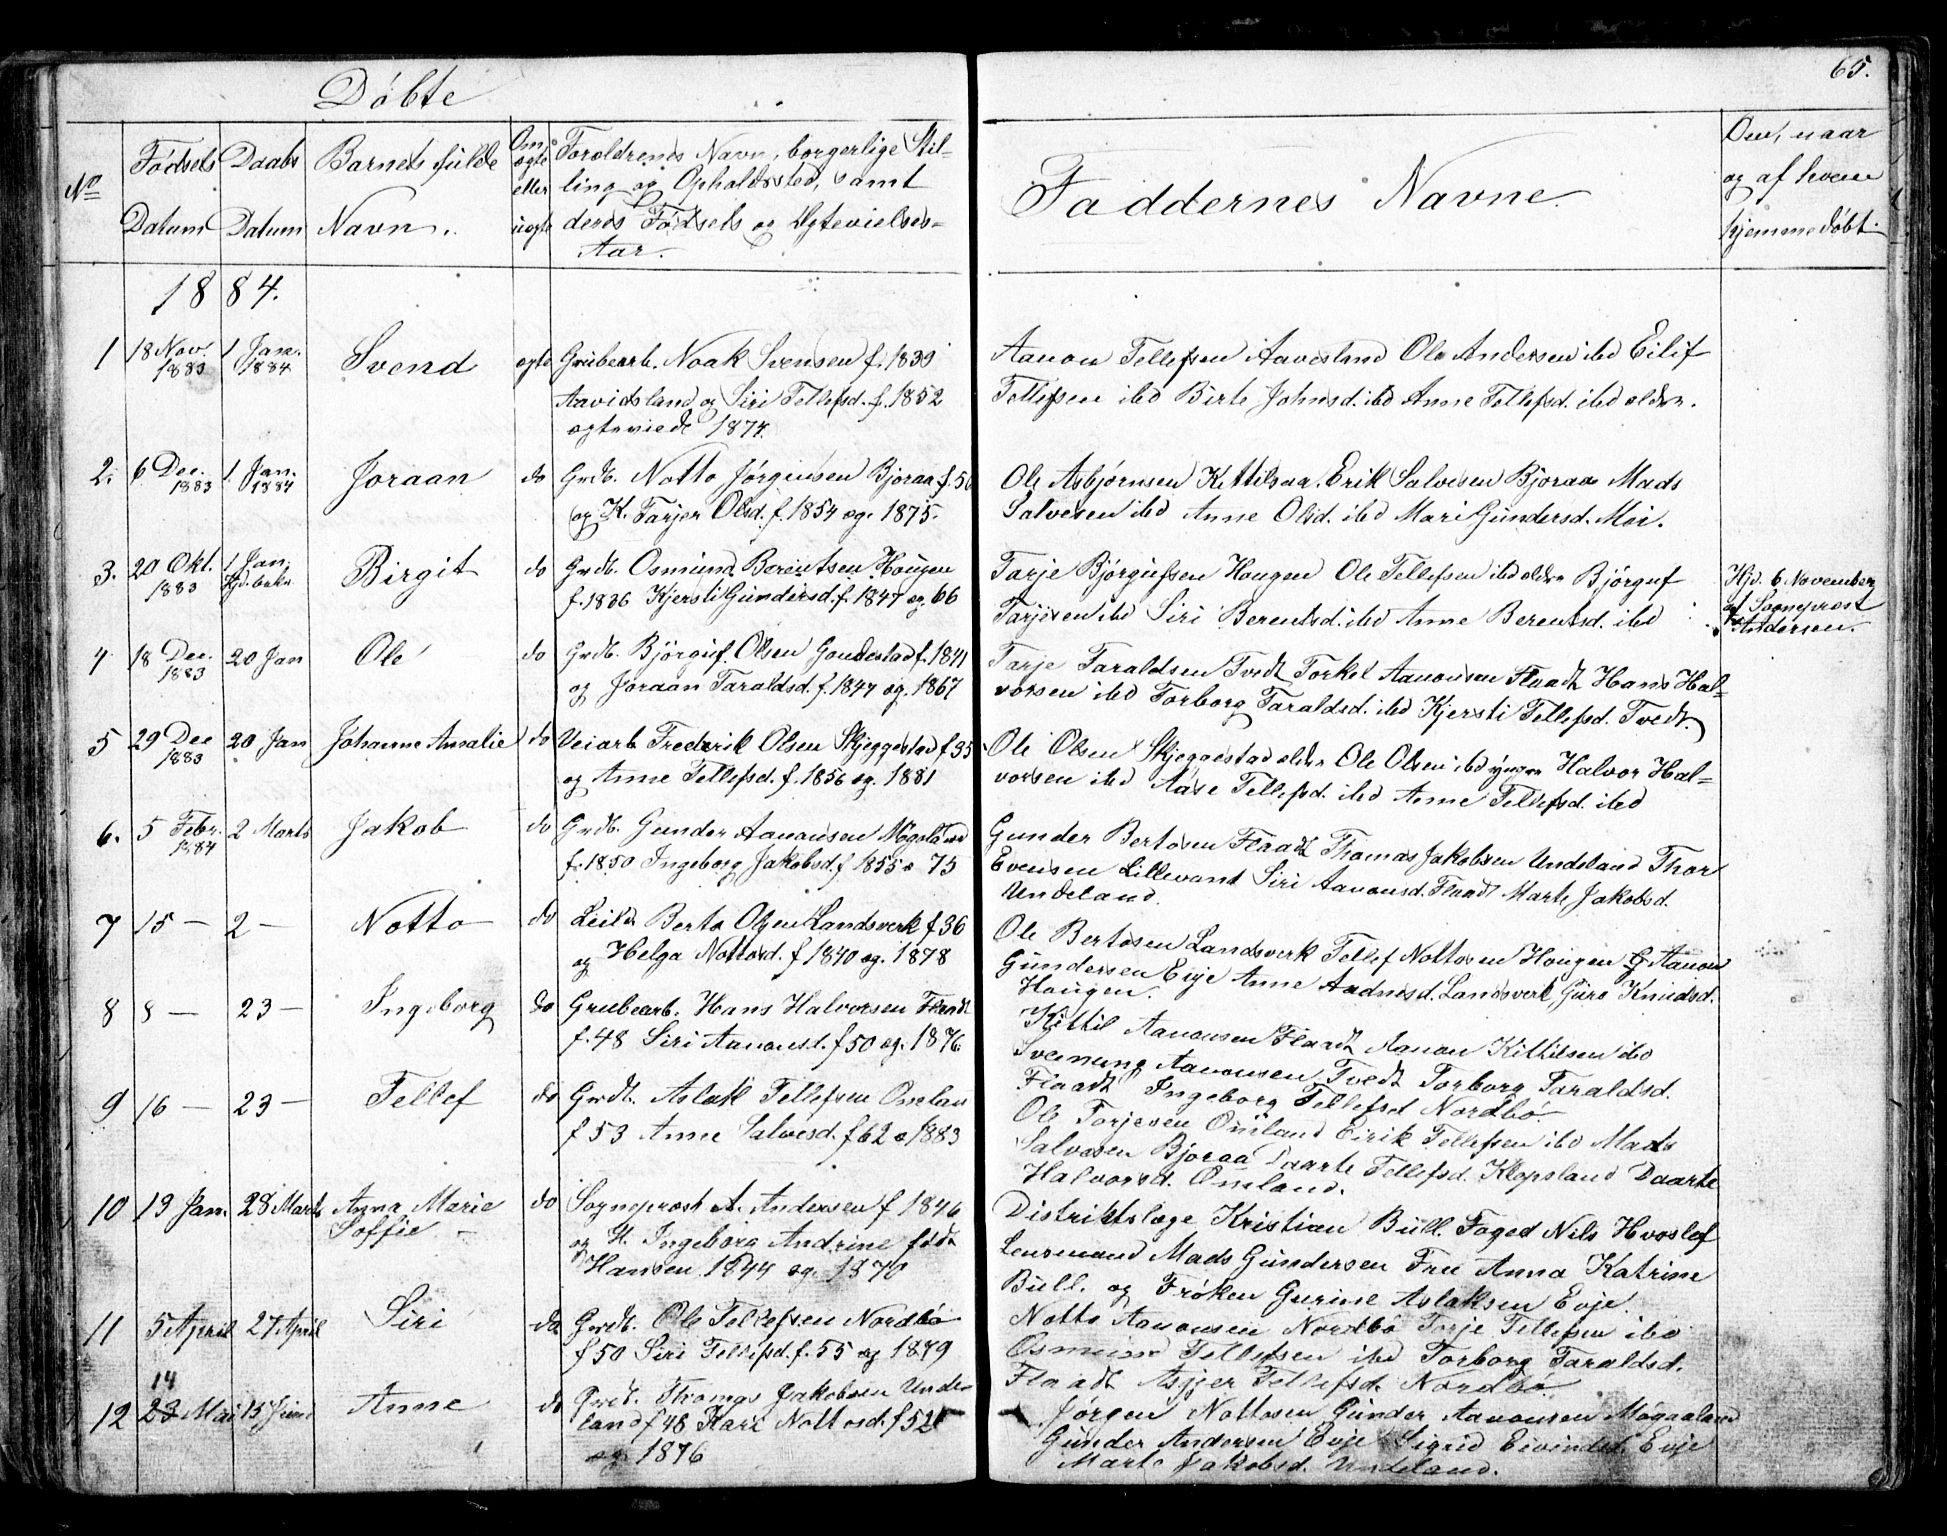 65.
Döbte
No
Fødsels Datum
Daabs Datum
Barnets fulde Navn.
Om ægte eller uægte
Foroldrenes Navn, borgerlige Stil-
ling og Opholdssted, samt
deres Fødsels og Ægtevielses-
Aar.
Faddernes Navne
Om, naar
og af hvem
hjemmedøbt.
1884.
1 18 Nov. 1883 1 Jan. 1884 Svend ægte Grubearb. Noak Svensen f. 1839
Aavidsland og Siri Tellefsd. f. 1852
ægteviede 1874.
Aanon Tellefsen Aavesland Ole Andersen ibd Eilif
Tellefsen ibd Birte Johnsd. ibd Anne Tellefsd. ibd ældre.
2. 6 Dec. 1883 1 Jan. 1884 Joraan do Grdb. Notto Jørgensen Bjoraa f. 50
og K. Tarjer Olsd. f. 1854 æg. 1875.
Ole Asbjørnsen Kittilsaa Erik Salvesen Bjoraa Mads
Salvesen ibd Anne Olsd. ibd Mari Gundersd. Moi.
3. 20 Okt. 1883 1 Jan. Hjd. bekr. Birgit do Grdb. Osmund Berentsen Hougen
f. 1836 Kjersti Gundersd. f. 1847 æg 66
Tarje Bjørgufsen Hougen Ole Tellefsen ibd ældre Bjørguf
Tarjesen ibd Siri Berentsd. ibd Anne Berentsd. ibd
Hjd. 6 November
af Sogneprest
Andersen.
4 18 Dec. 1883 20 Jan Ole do Grdb. Bjørguf Olsen Goudestad f. 1841
og Joraan Taraldsd. f. 1847 æg. 1867
Tarje Taraldsen Tvedt Torkel Aanonsen Flaadt Hans Hal-
vorsen ibd Torborg Taraldsd. ibd Kjersti Tellefsd. Tvedt.
5 29 Dec 1883 20 Jan Johanne Amalie do Veiarb. Fredrik Olsen Skjeggestad f. 35
og Anne Tellefsd. f. 1856 æg. 1881
Ole Olsen Skjeggestad ældre Ole Olsen ibd yngre Halvor Hal-
vorsen ibd Aase Tellefsd. ibd Anne Tellefsd. ibd
6. 5 Febr. 1884 2 Marts Jakob do Grdb. Gunder Aanonsen Møgeland
f. 1850 Ingeborg Jakobsd. f 1855 æ 75
Gunder Bertosen Flaadt Thomas Jakobsen Undeland Thor
Evensen Lillevant Siri Aanonsd. Flaadt Marte Jakobsd.
Undeland.
7 15 — 2 — Notto do Leild. Berto Olsen Landsverk f 36
og Helga Nottosd. f 1840 æg. 1878
Ole Bertosen Landsverk Tellef Nottosen Hougen G Aanon
Gundersen Evje Anne Aadnesd. Landsverk Guro Knudsd.
Hougen.
8 8 — 23 — Ingeborg do Grubearb. Hans Halvorsen Flaadt
f. 48 Siri Aanonsd. f 50 æg. 1876.
Kittil Aanonsen Flaadt Aanon Kittilsen ibd
Sveinung Aanonsen Tvedt Torborg Taraldsd.
Flaadt Ingeborg Tellefsd Nordbø
9 16 — 23 — Tellef do Grdb. Aslak Tellefsen Omlan
f 53 Anne Salvesd. f 62 æ 1883
Ole Torjesen Omland Eirik Tellefsen ibd Mads
Salvesen Bjoraa Daarte Tellefsd. Klepsland Daarte
Halvorsd. Omland.
10 19 Jan. 28 Marts Anna Marie Soffie do Sogneprest A. Andersen f 1846
og H. Ingeborg Andrine født
Hansen 1844 æg. 1870
Distriktslæge Kristian Bull. Foged Nils Hvoslef
Lensmand Mads Gundersen Fru Anna Katrine
Bull. og Frøken Gurine Aslaksen Evje.
11 5 April 27 April Siri do Grdb. Ole Tellefsen Nordbø
f 50 Siri Tellefsd. f. 55 æg 1879
Notto Aanonsen Nordbø Torje Tellefsen ibd
Osmund Tellefsen ibd Torborg Taraldsd.
Flaadt Asjer Tellefsd. Nordbø.
12 14 23 Mai 15 Juni Anne do Grdb. Thomas Jakobsen Unde-
land f 48 Kari Nottosd. f 52
æg. 1876
Jørgen Nottosen Gunder Aanonsen Møgaaland
Gunder Andersen Evje Sigrid Eivindsd. Evje
Marte Jakobsd. Undeland.